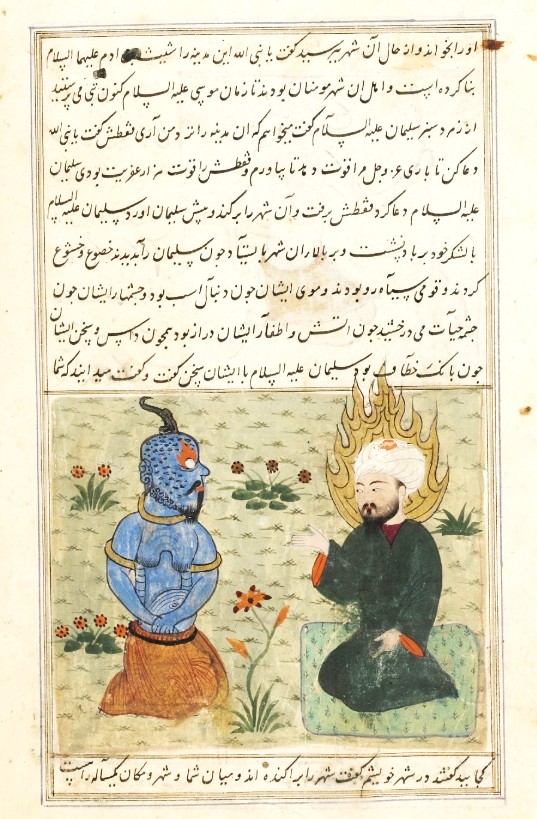 او را بخواند و از حال آن شهر پرسید گفت یا نبی الله این مدینه را شیث بن آدم علیهما السلام
بنا کرده است و اهل آن شهر مومنان بودند تا زمان موسی علیه السلام کنون بت می پرستید
سلیمان علیه السلام گفت میخواهم که آن مدینه را نزد من آری قفطش گفت یا نبی الله
دعا کن تا باری عز و جل مرا قوت دهد تا بیاورم و قفطش را قوت هزار عفریت بودی سلیمان
علیه السلام دعا کرد قفطش برفت و آن شهر را بر کند و پیش سلیمان آورد سلیمان علیه السلام
با لشکر خود بر باد نشست و بر بالا ان شهر چون سلیمان را بدیدند خضوع و خشوع
کردند و قومی سیاه رو بودند و موی ایشان چون دنبال اسب بود و چشمها ایشان چون
می درخشید چون آتش و اظفار ایشان دراز بود همچون داس و سخن ایشان
چون بانک خطاف بود سلیمان علیه السلام با ایشان سخن گفت و گفت میدانید که شما
کجایید گفتند در شهر خویشیم گفت شهر را بر کنده اند و میان شما و شهر و مکان یکساله راه است